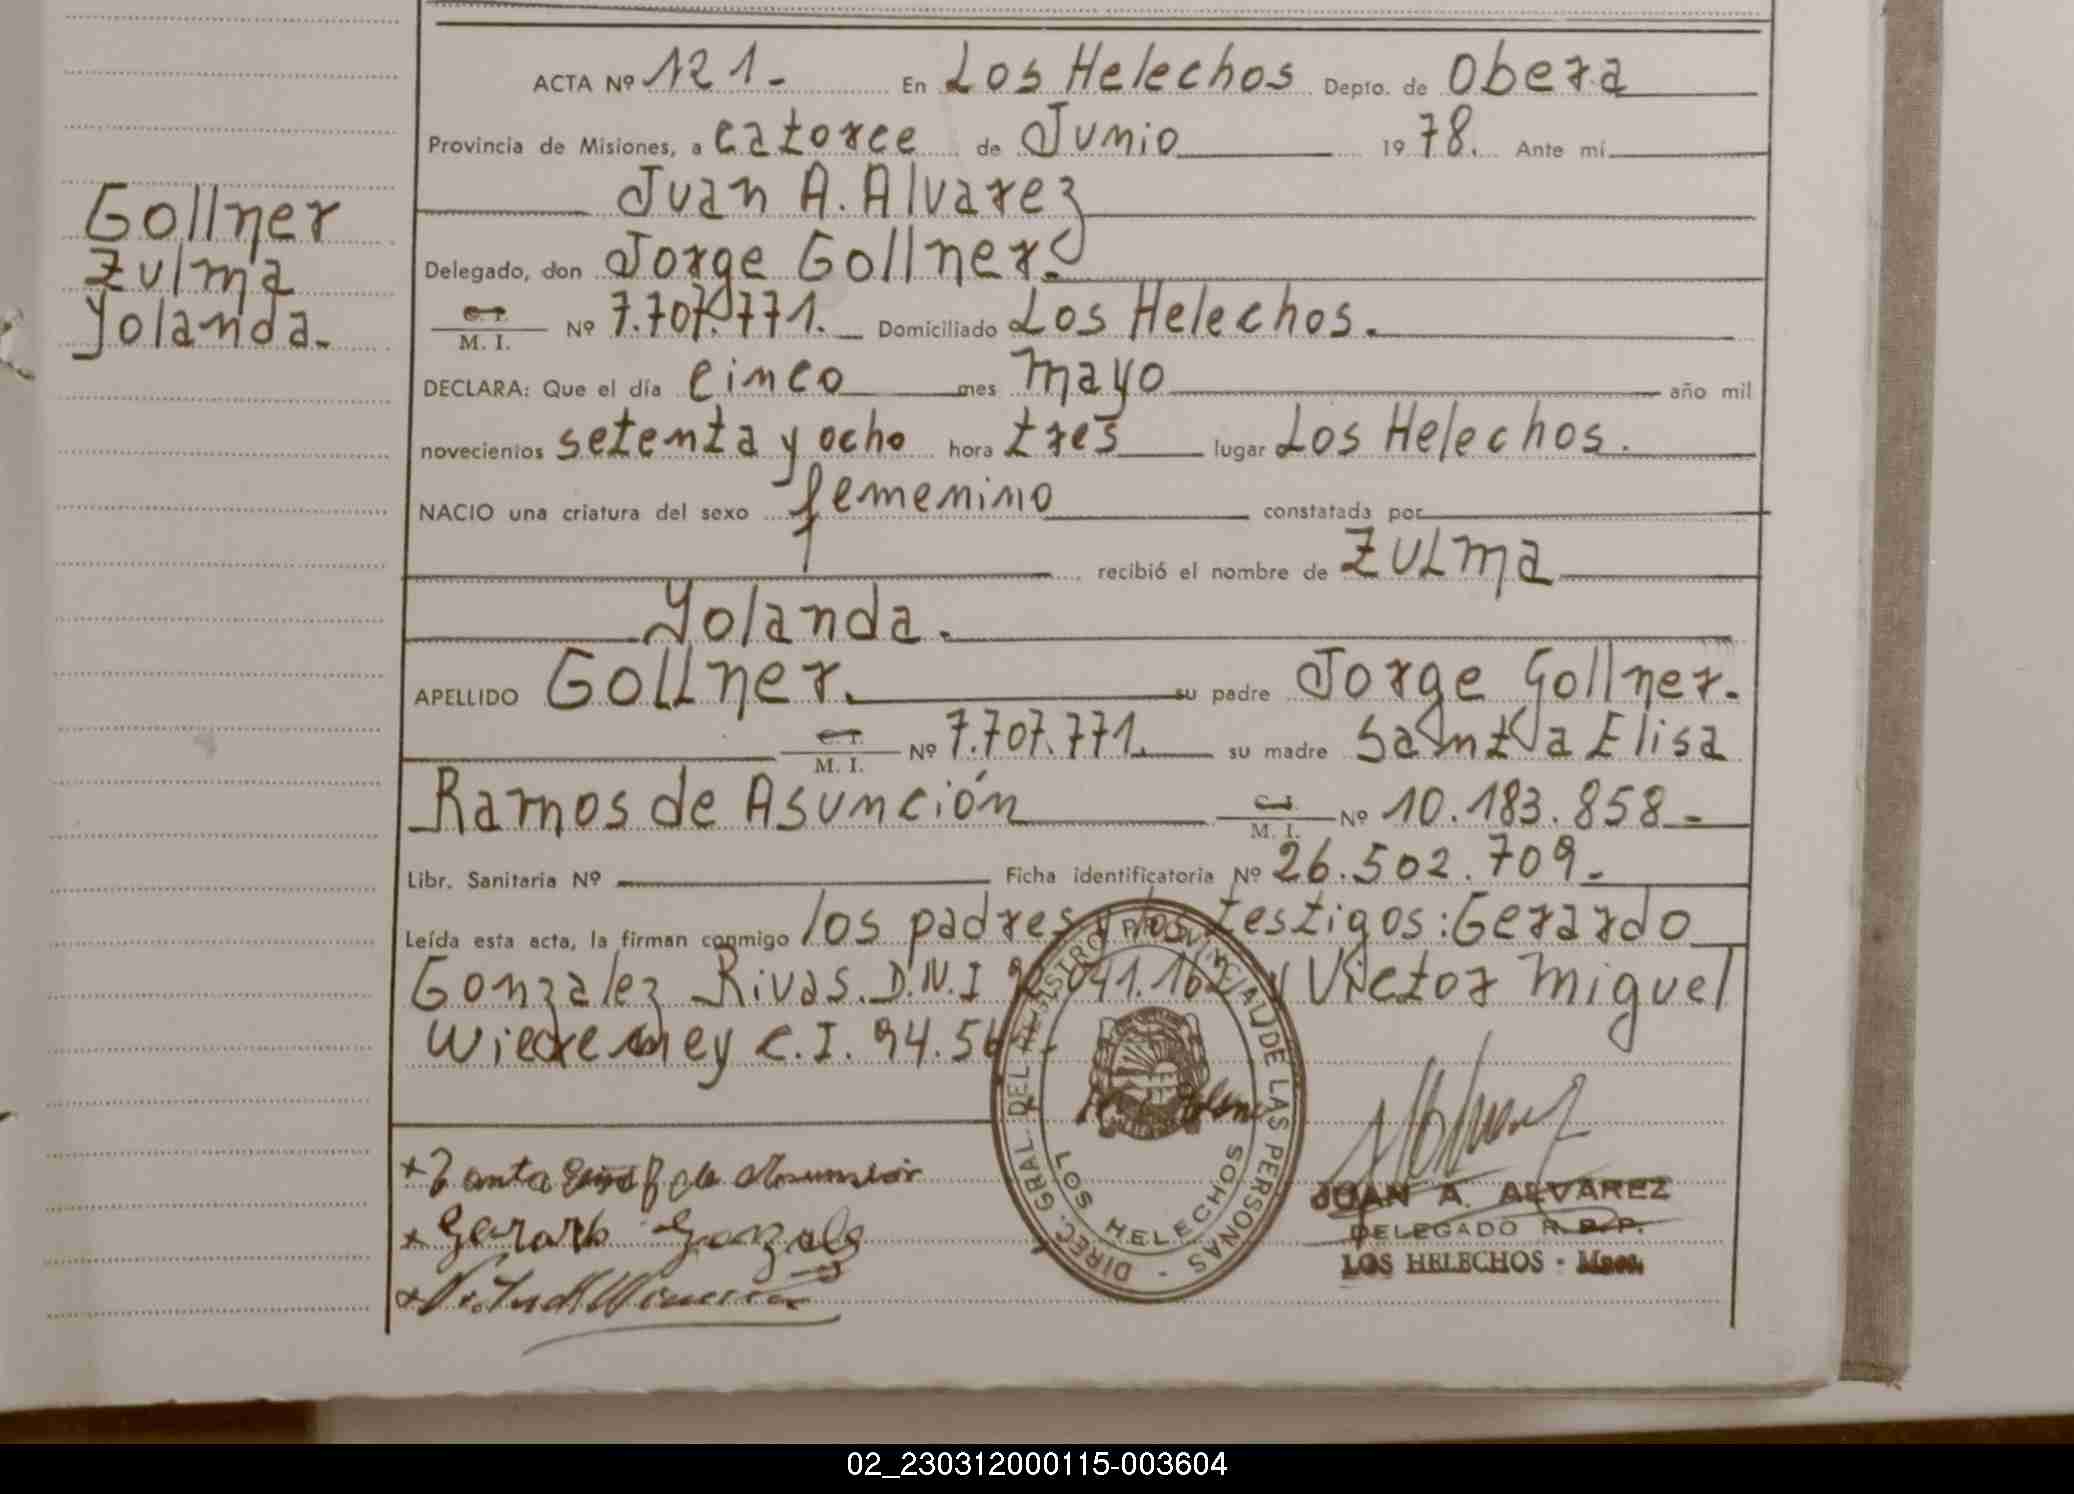 ACTA Nº 121.- En Los Helechos Depto. de Obera
Provincia de Misiones, a catorce de Junio 1978. Ante mí
Juan A. Alvarez
Gollner
Zulma
Yolanda.-
Delegado, don Jorge Gollner.
C. I.
M. I. Nº 7.707.771. Domiciliado Los Helechos.
DECLARA: Que el día cinco mes mayo año mil
novecientos setenta y ocho hora tres lugar Los Helechos.
NACIO una criatura del sexo femenino constatada por
recibió el nombre de Zulma
Yolanda.
APELLIDO Gollner. su padre Jorge Gollner.
C. I.
M. I. Nº 7.707.771. su madre Santa Elisa
Ramos de Asunción C. I.
M. I. Nº 10.183.858.-
Libr. Sanitaria Nº Ficha identificatoria Nº 26.502.709.-
Leída esta acta, la firman conmigo los padres y los testigos: Gerardo
Gonzalez Rivas. D.N.I y Victor Miguel
C.I. 94.56
DIREC. GRAL. DEL REGISTRO PROVINCIAL DE LAS PERSONAS
LOS HELECHOS
Gerardo Gonzalez
JUAN A. ALVAREZ
DELEGADO R. P. P.
LOS HELECHOS - Mnes.
02_230312000115-003604